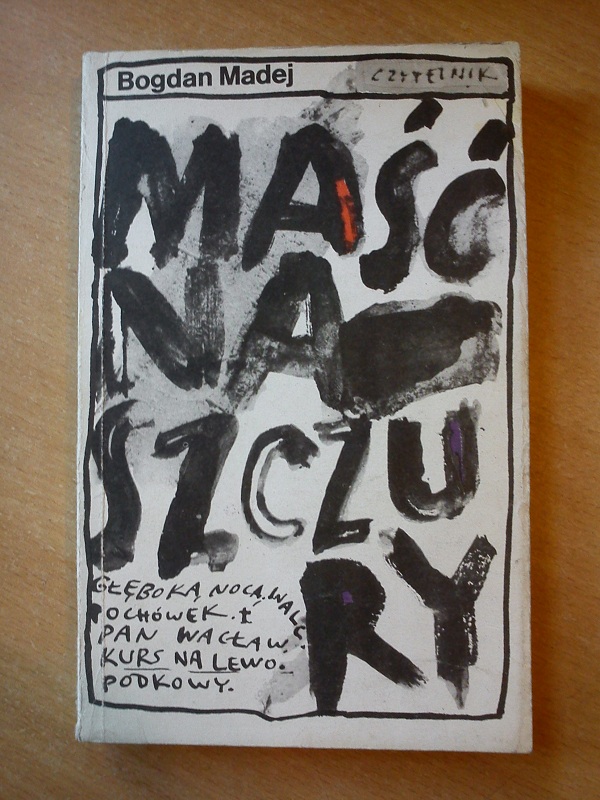 Bogdan Madej
CZYTELNIK
MAŚĆ
NA
SZCZU
RY
GŁĘBOKĄ NOCĄ. WALC.
POCHÓWEK. I
PAN WACŁAW.
KURS NA LEWO.
PODKOWY.